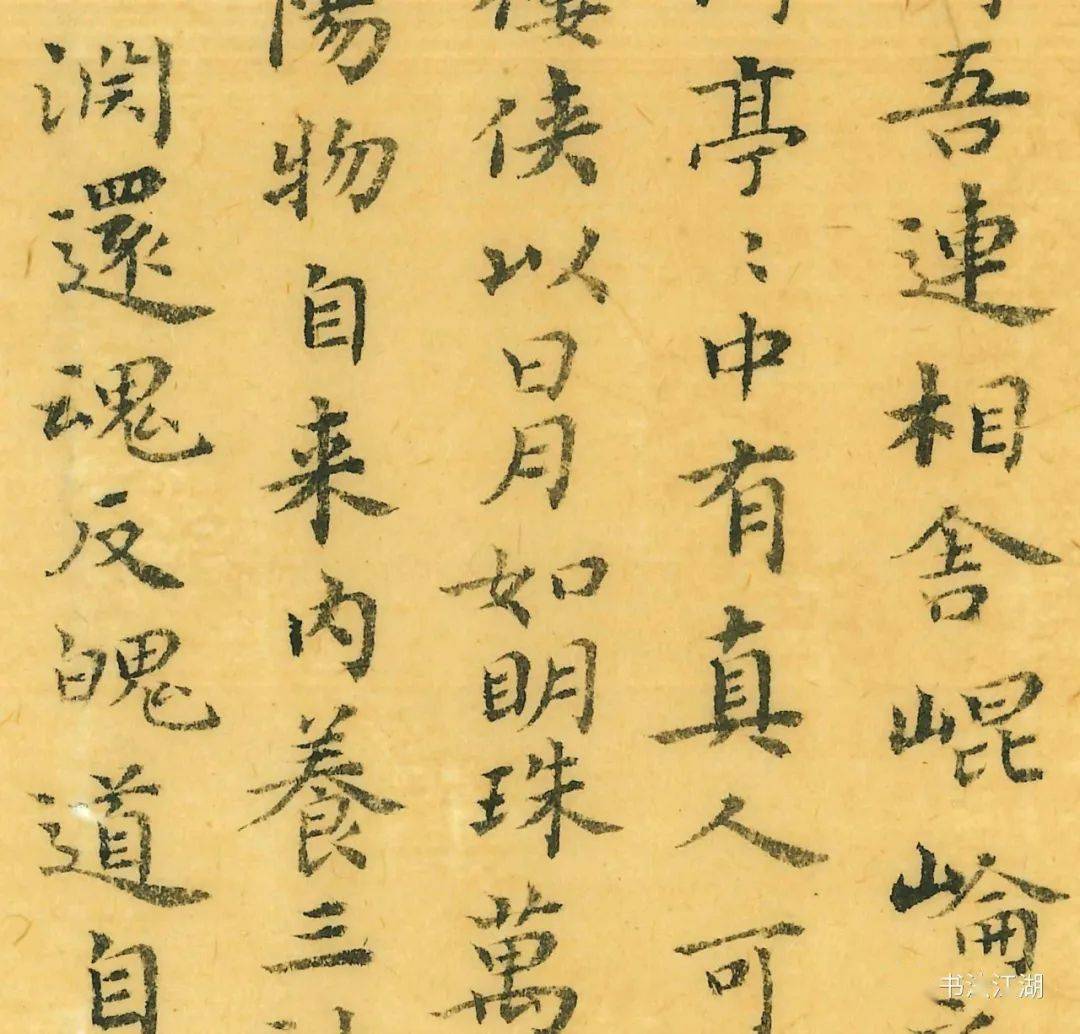 吾連相舍崐崘
亭〻中有真人可
俠以日月如明珠萬
陽物自来内養三
還魂反魄道自
书法江湖